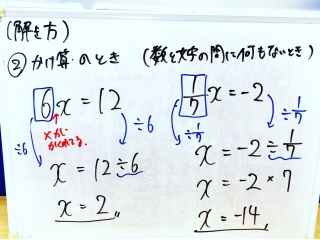 (解き方)
② かけ算のとき (数と文字の間に何もないとき)
6x = 12
×がかくれてる。
÷6
÷6
x = 12÷6
x = 2
1/7 x = -2
÷1/7
÷1/7
x = -2 ÷ 1/7
x = -2 × 7
x = -14